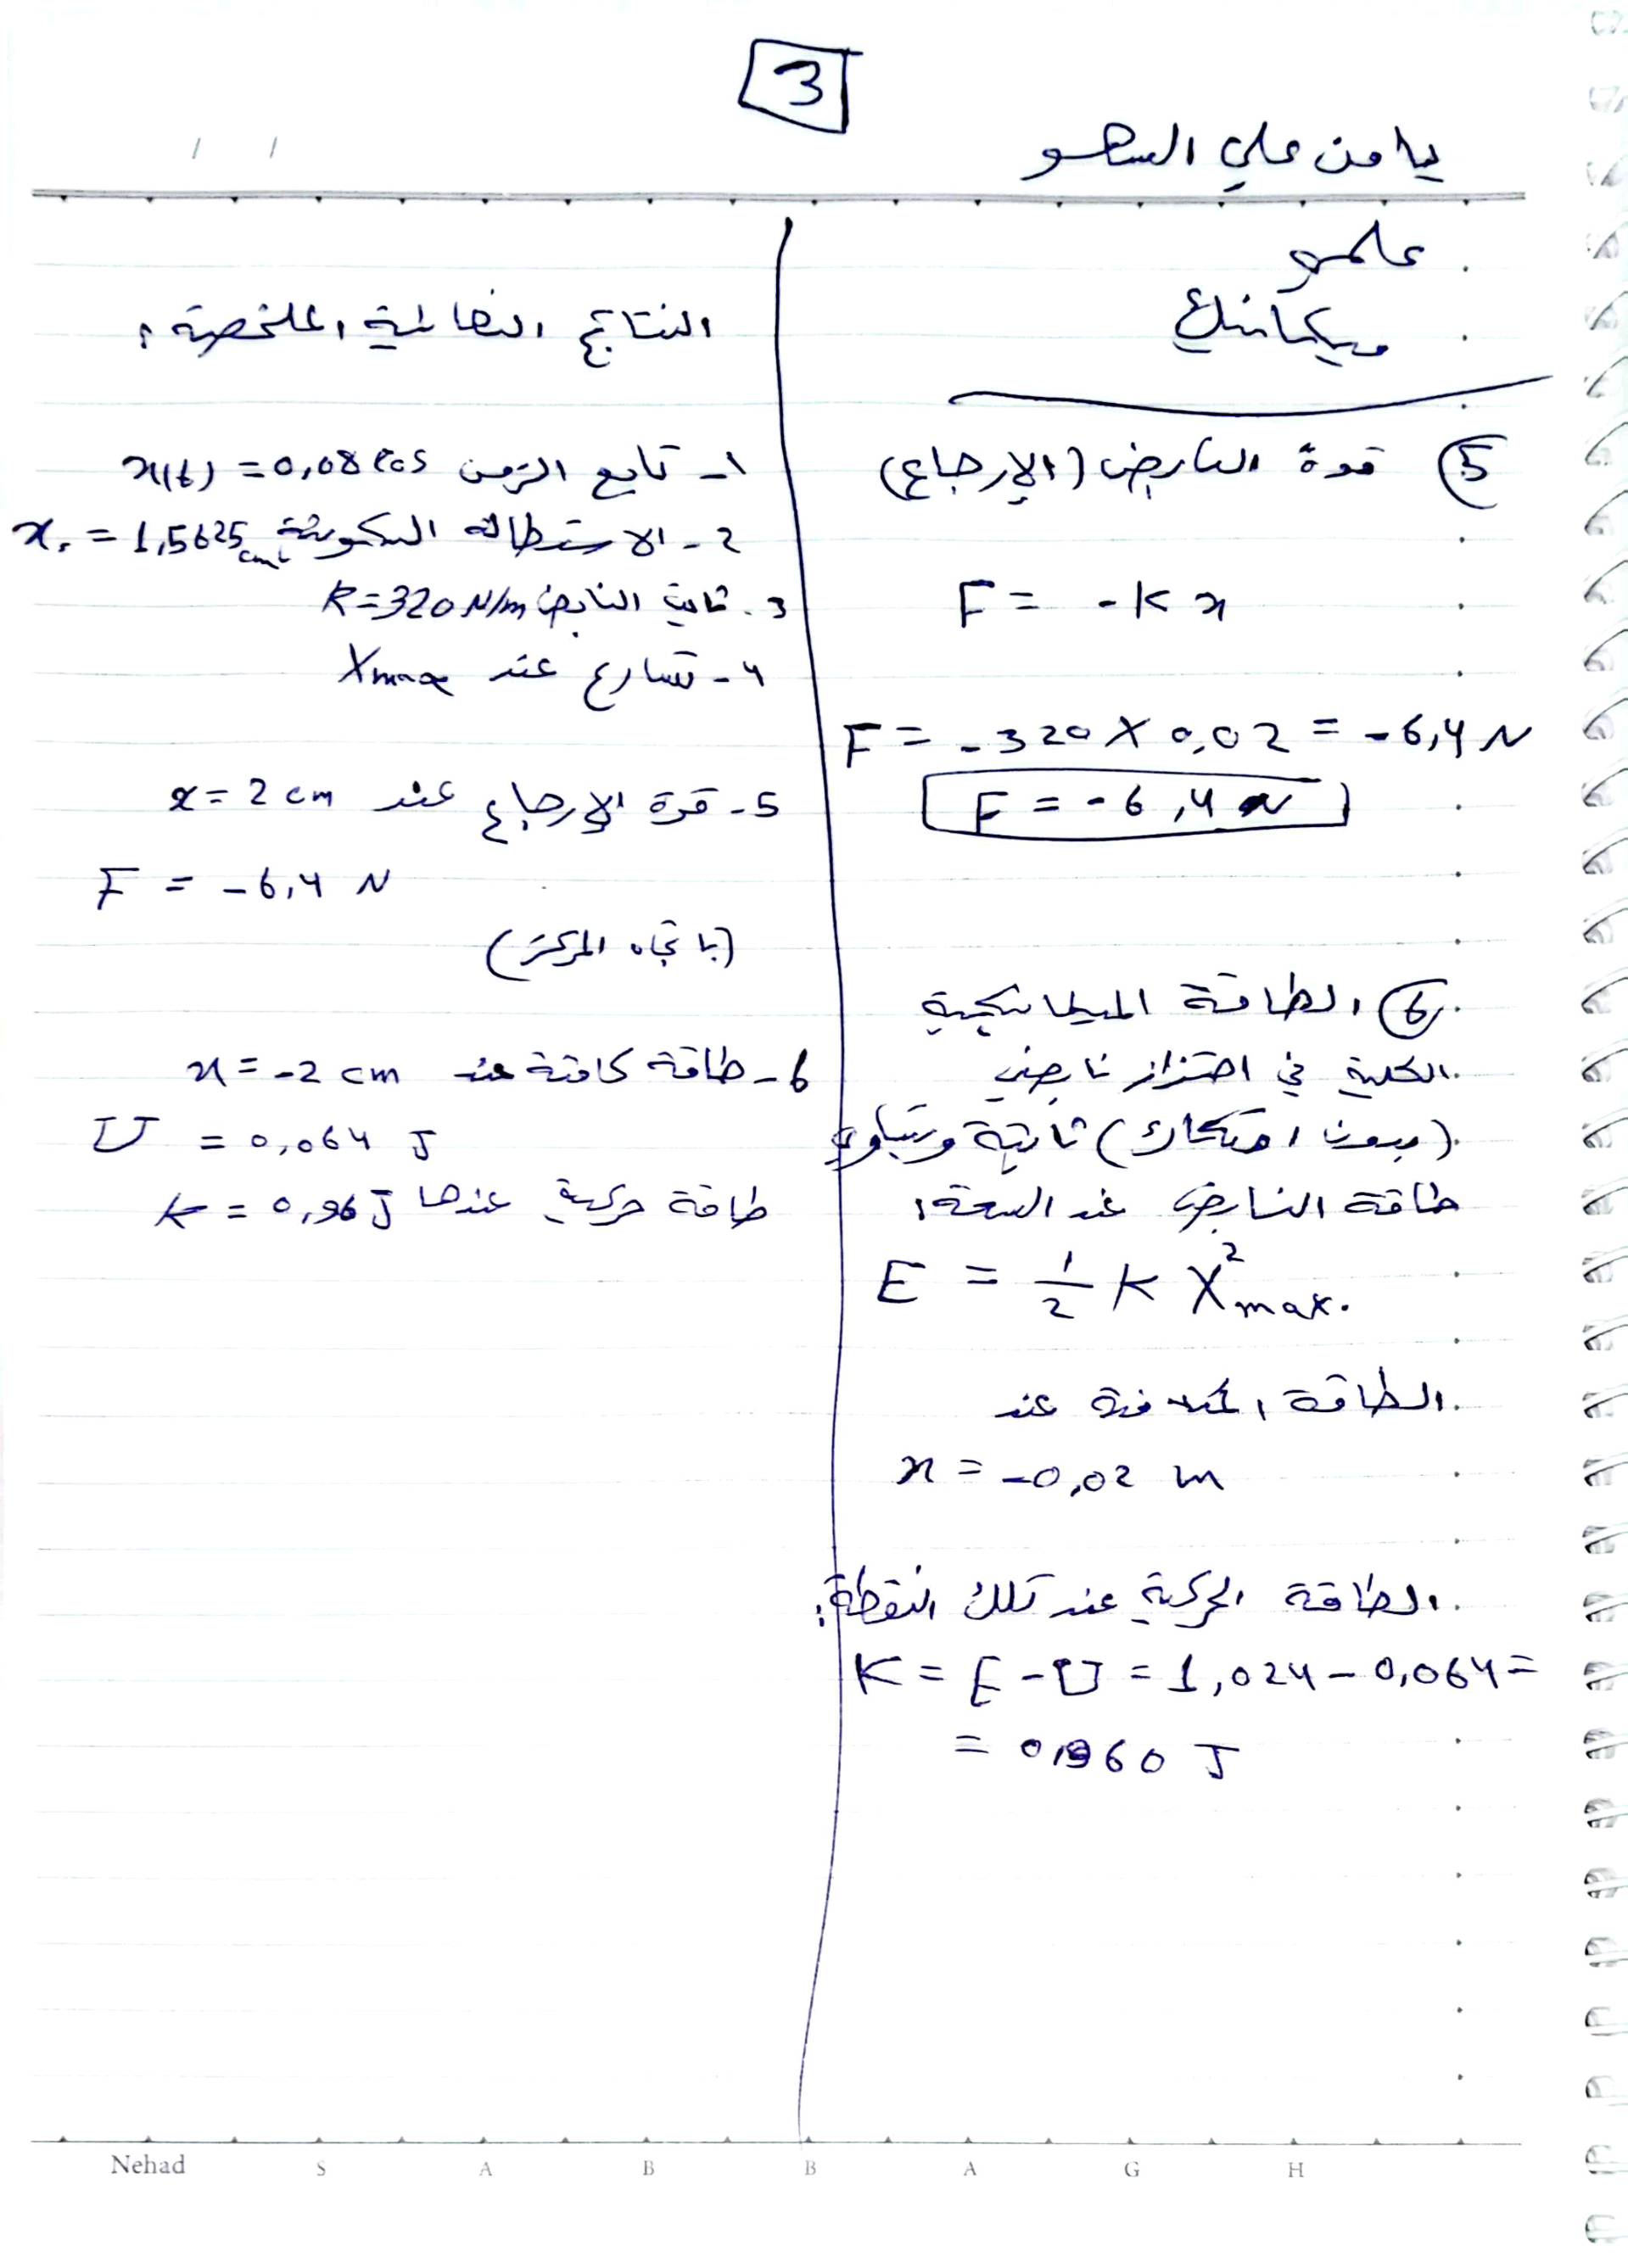 3
يامن علي السهو
علمي
ميكانيك
5 قوة النابض (الإرجاع)
F = - K x
F = - 320 X 0,02 = - 6,4 N
F = - 6,4 N
6 الطاقة الميكانيكية
الكلية في اهتزاز نابض
(بدون احتكاك) ثابتة وتساوي
طاقة النابض عند السعة:
E = 1/2 K X²max.
الطاقة الكامنة عند
x = -0,02 m
الطاقة الحركية عند تلك النقطة:
K = E - U = 1,024 - 0,064 =
= 0,960 J
النتائج النهائية الملخصة:
1- تابع الزمن x(t) = 0,08 cos
2- الاستطالة السكونية x. = 1,5625 cm
3. ثابت النابض K=320 N/m
4- تسارع عند Xmax
5- قوة الإرجاع عند x = 2 cm
F = - 6,4 N
(باتجاه المركز)
6- طاقة كامنة عند x = -2 cm
U = 0,064 J
طاقة حركية عندها K = 0,96 J
Nehad S A B B A G H